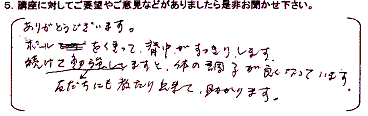 5. 講座に対してご要望やご意見などがありましたら是非お聞かせ下さい。
ありがとうございます。
ボール を使って、背中がすっきりします。
続けて勉強しますと、体の調子が良くなっています。
友だちにも教えたり出来て、助かります。